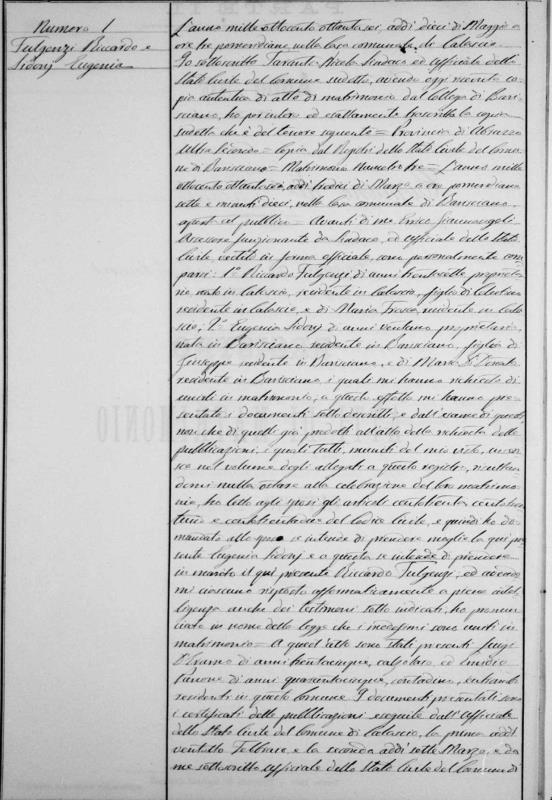 Numero 1
Fulgenzi Riccardo e
Sidonj Eugenia
L'anno mille ottocento ottantasei, addì dieci di Marzo a
ore tre pomeridiane nella Casa comunale di Calascio.
Io sottoscritto Taranta Nicola Sindaco ed Uffiziale dello
Stato Civile del Comune sudetto, avendo oggi ricevuto co-
pia autentica di atto di matrimonio dal Collega di Baris-
ciano, ho per intero ed esattamente trascritta la copia
sudetta che è del tenore seguente = Provincia di Abruzzo
Ultra Secondo = Copia dai Registri dello Stato Civile del Comu-
ne di Barisciano = Matrimonio Numero tre = L'anno mille
ottocento ottantasei, addì di Marzo a ore pomeridiane
sette e minuti dieci, nella casa comunale di Barisciano,
aperta al pubblico = Avanti di me Enrico
Assessore funzionante da Sindaco, ed uffiziale dello Stato
Civile vestito in forma officiale, sono personalmente com-
parsi: 1° Riccardo Fulgenzi di anni trentasette, proprieta-
rio, nato in Calascio, residente in Calascio, figlio di
residente in Calascio, e di Maria Frasca residente in Cala-
scio; 2° Eugenia Sidonj di anni ventuno proprietaria,
nata in Barisciano residente in Barisciano, figlia di
Giuseppe residente in Barisciano, e di Maria Di Donato
residente in Barisciano, i quali mi hanno richiesto di
unirli in matrimonio, a questo effetto mi hanno pre-
sentato i documenti sotto descritti, e dall'esame di questi
nonchè di quelli già prodotti all'atto della richiesta delle
pubblicazioni, i quali tutti, muniti del mio visto, inseri-
sco nel volume degli allegati a questo registro, risultan-
domi nulla ostare alla celebrazione del loro matrimo-
nio, ho letto agli sposi gli articoli centotrenta, centotren-
tuno e centotrentadue del Codice Civile, e quindi ho do-
mandato allo sposo se intende di prendere in moglie la qui pre-
sente Eugenia Sidonj e a questa se intende di prendere
in marito il qui presente Riccardo Fulgenzi, ed avendo
mi ciascuno risposto affermativamente a piena intel-
ligenza anche dei testimoni sotto indicati, ho pronun-
ciato in nome della legge che i medesimi sono uniti in
matrimonio = A quest'atto sono stati presenti Luigi
D'Eramo di anni trentacinque, calzolaio, ed Emidio
di anni quarantacinque, contadino, entrambi
residenti in questo Comune. I documenti presentati sono
i certificati delle pubblicazioni eseguite dall'Uffiziale
dello Stato Civile del Comune di Calascio, la prima addì
ventotto Febbraio, e la seconda addì sette Marzo, e da
me sottoscritto Uffiziale dello Stato Civile del Comune di